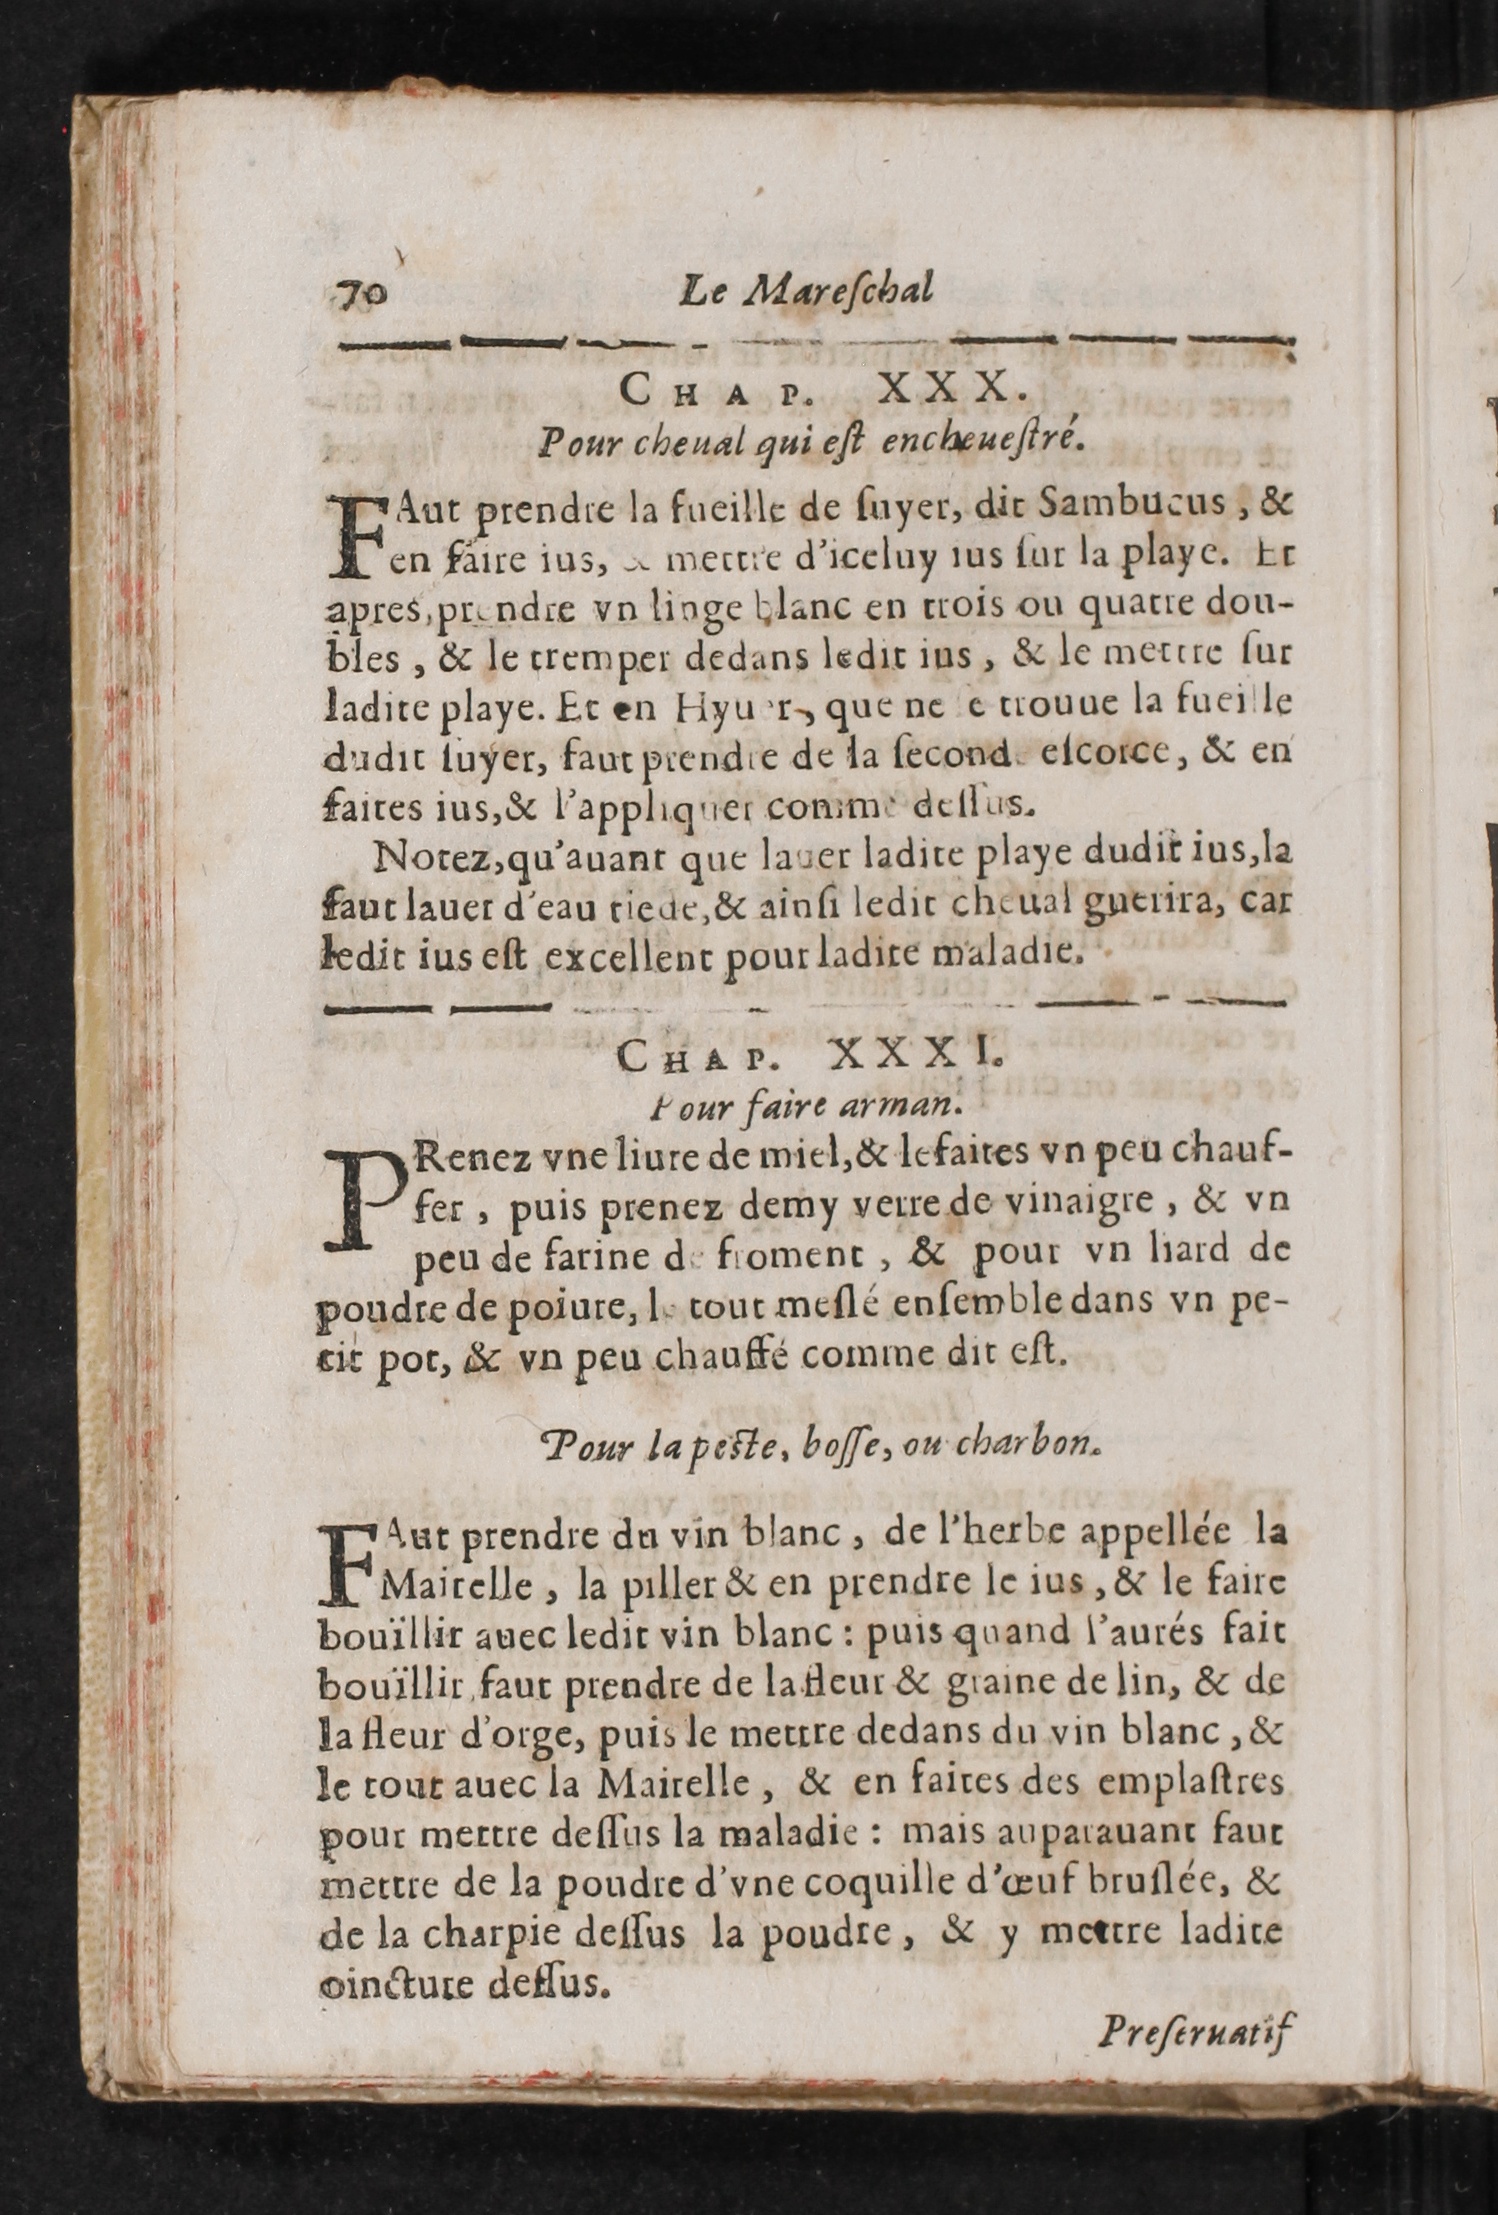 70 Le Mareſchal
CHAP. XXX.
Pour cheual qui eſt encheueſtré.
FAut prendre la fueille de ſuyer, dit Sambucus, &
en faire ius, & mettre d'iceluy ius ſur la playe. Et
apres, prendre vn linge blanc en trois ou quatre dou-
bles, & le tremper dedans ledit ius, & le mettre ſur
ladite playe. Et en Hyuer, que ne ſe trouue la fueille
dudit ſuyer, faut prendre de la ſeconde eſcorce, & en
faites ius, & l'appliquer comme deſſus.
Notez, qu'auant que lauer ladite playe dudit ius, la
faut lauer d'eau tiede, & ainſi ledit cheual guerira, car
ledit ius eſt excellent pour ladite maladie.
CHAP. XXXI.
Pour faire arman.
PRenez vne liure de miel, & le faites vn peu chauf-
fer, puis prenez demy verre de vinaigre, & vn
peu de farine de froment, & pour vn liard de
poudre de poiure, le tout meſlé enſemble dans vn pe-
tit pot, & vn peu chauffé comme dit eſt.
Pour la peſte, boſſe, ou charbon.
FAut prendre du vin blanc, de l'herbe appellée la
Mairelle, la piller & en prendre le ius, & le faire
bouïllir auec ledit vin blanc : puis quand l'aurés fait
bouïllir, faut prendre de la fleur & graine de lin, & de
la fleur d'orge, puis le mettre dedans du vin blanc, &
le tout auec la Mairelle, & en faites des emplaſtres
pour mettre deſſus la maladie : mais auparauant faut
mettre de la poudre d'vne coquille d'œuf bruſlée, &
de la charpie deſſus la poudre, & y mettre ladite
oincture deſſus.
Preſeruatif